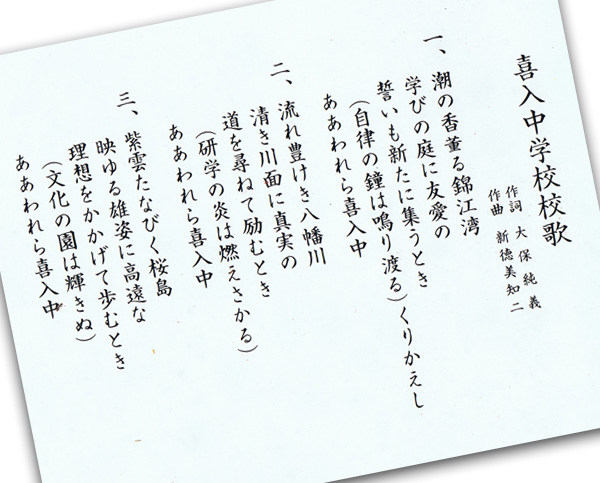 喜入中学校校歌
作詞 大保純義
作曲 新徳美知二
一、潮の香薫る錦江湾
学びの庭に友愛の
誓いも新たに集うとき
(自律の鐘は鳴り渡る)くりかえし
ああわれら喜入中
二、流れ豊けき八幡川
清き川面に真実の
道を尋ねて励むとき
(研学の炎は燃えさかる)
ああわれら喜入中
三、紫雲たなびく桜島
映ゆる雄姿に高遠な
理想をかかげて歩むとき
(文化の園は輝きぬ)
ああわれら喜入中